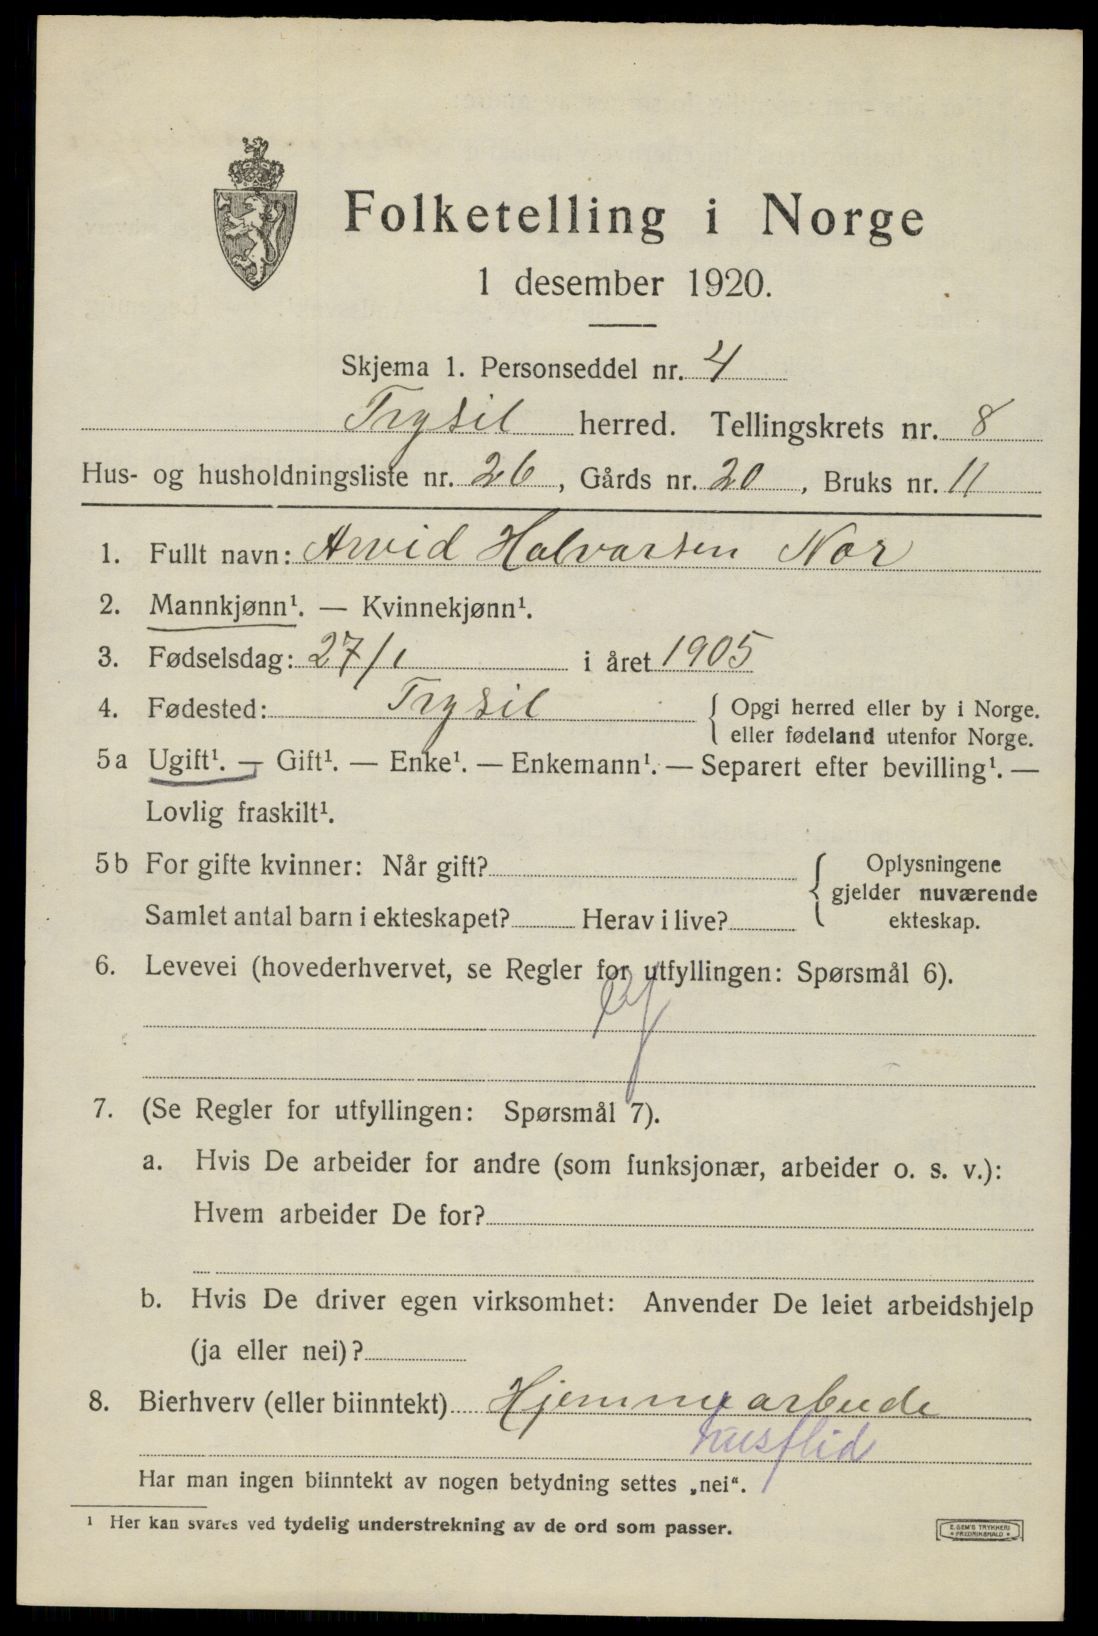 Folketelling i Norge
1 desember 1920.
Skjema 1. Personseddel nr. 4
Trysil herred. Tellingskrets nr. 8
Hus- og husholdningsliste nr. 26, Gårds nr. 20, Bruks nr. 11
1. Fullt navn: Arvid Halvarsen Nor
2. Mannkjønn¹. — Kvinnekjønn¹.
3. Fødselsdag: 27/1 i året 1905
4. Fødested: Trysil { Opgi herred eller by i Norge.
eller fødeland utenfor Norge.
5 a Ugift¹. — Gift¹. — Enke¹. — Enkemann¹. — Separert efter bevilling¹. —
Lovlig fraskilt¹.
5 b For gifte kvinner: Når gift? { Oplysningene
gjelder nuværende
Samlet antal barn i ekteskapet? Herav i live? ekteskap.
6. Levevei (hovederhvervet, se Regler for utfyllingen: Spørsmål 6).
7. (Se Regler for utfyllingen: Spørsmål 7).
a. Hvis De arbeider for andre (som funksjonær, arbeider o. s. v.):
Hvem arbeider De for?
b. Hvis De driver egen virksomhet: Anvender De leiet arbeidshjelp
(ja eller nei)?
8. Bierhverv (eller biinntekt) Hjemmearbeide
husflid
Har man ingen biinntekt av nogen betydning settes „nei“.
¹ Her kan svares ved tydelig understrekning av de ord som passer.
E. SEM'S TRYKKERI
FREDRIKSHALD